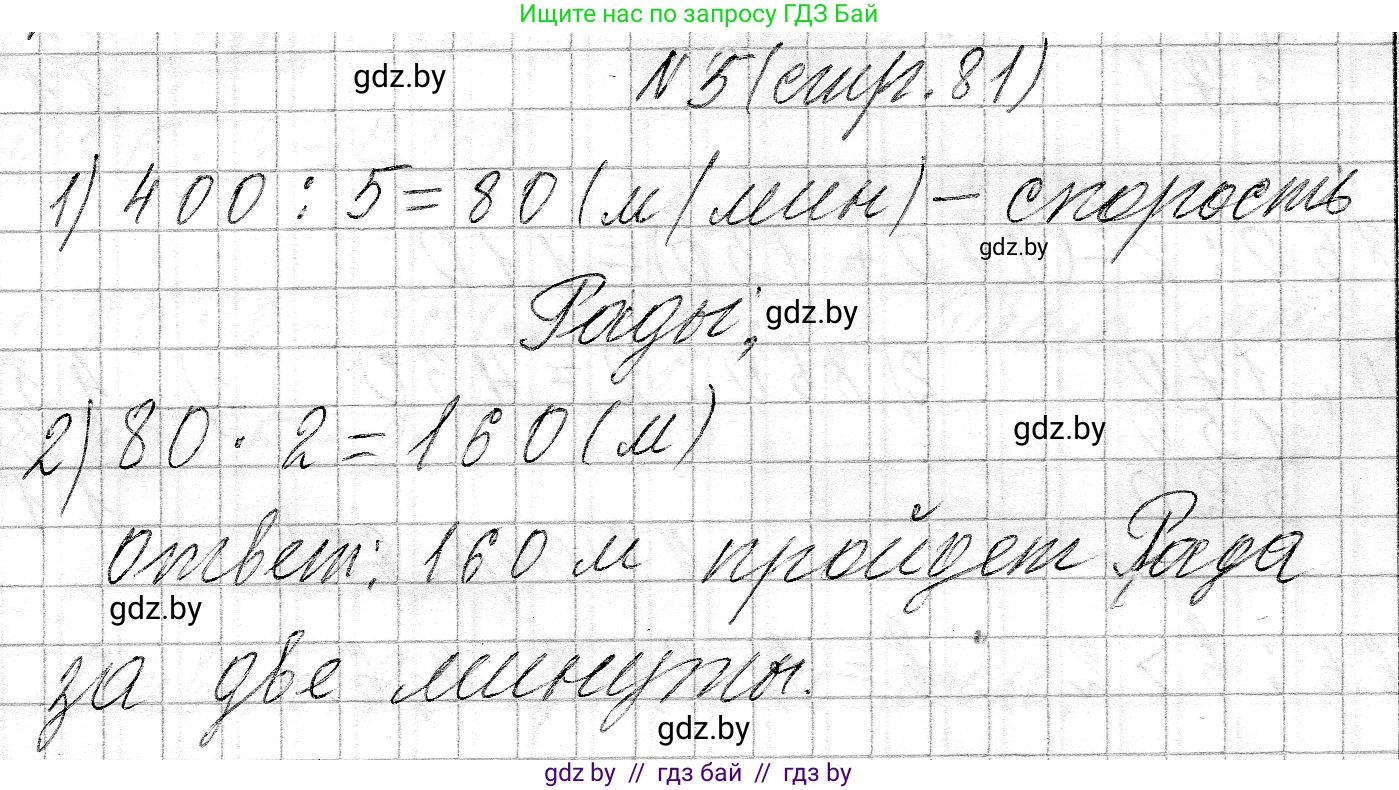 Ищите нас по запросу ГДЗ Бай
gdz.by
N 5 (стр. 81)
1) 400 : 5 = 80 (м/мин) – скорость
gdz.by
Рады; gdz.by
2) 80 · 2 = 160 (м)
gdz.by
ответ: 160 м пройдет Рада
gdz.by
за две минуты.
gdz.by
gdz by // гдз бай // гдз by